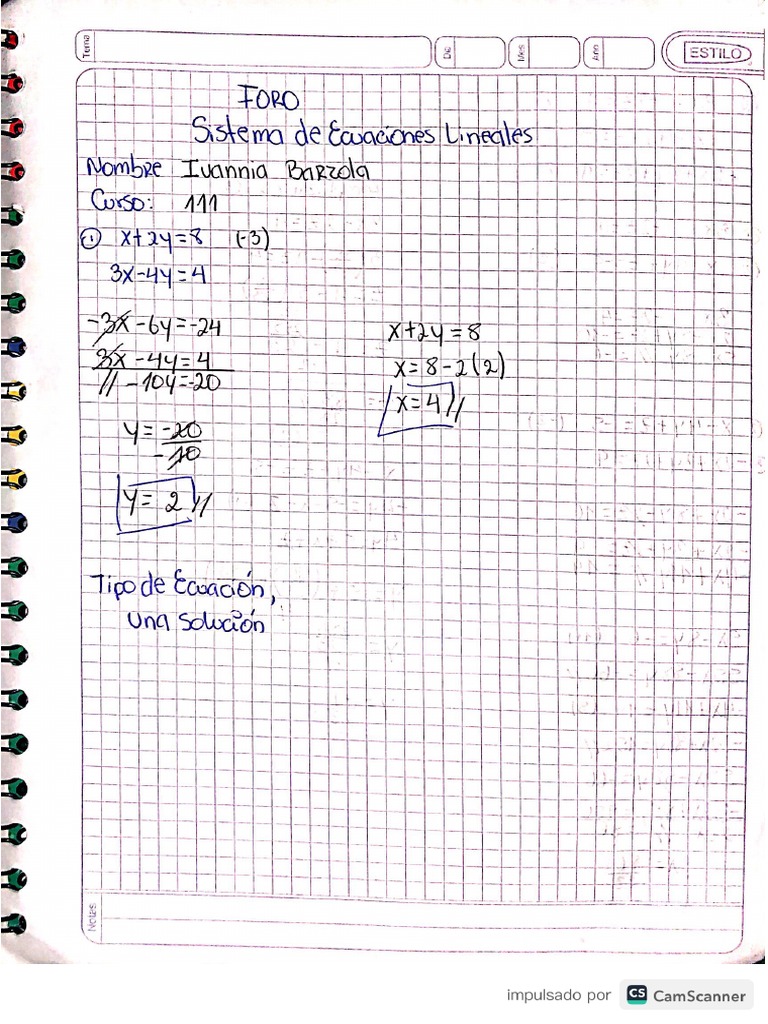 Tema
De
Mes
Ano
ESTILO
FORO
Sistema de Ecuaciones Lineales
Nombre Ivannia Barzola
Curso: 111
① x+2y=8 (-3)
3x-4y=4
-3x-6y=-24
3x-4y=4
// -10y=-20
y= -20
-10
y= 2 //
x+2y=8
x= 8-2(2)
x=4//
Tipo de Ecuación,
Una Solución
Notas
impulsado por CS CamScanner